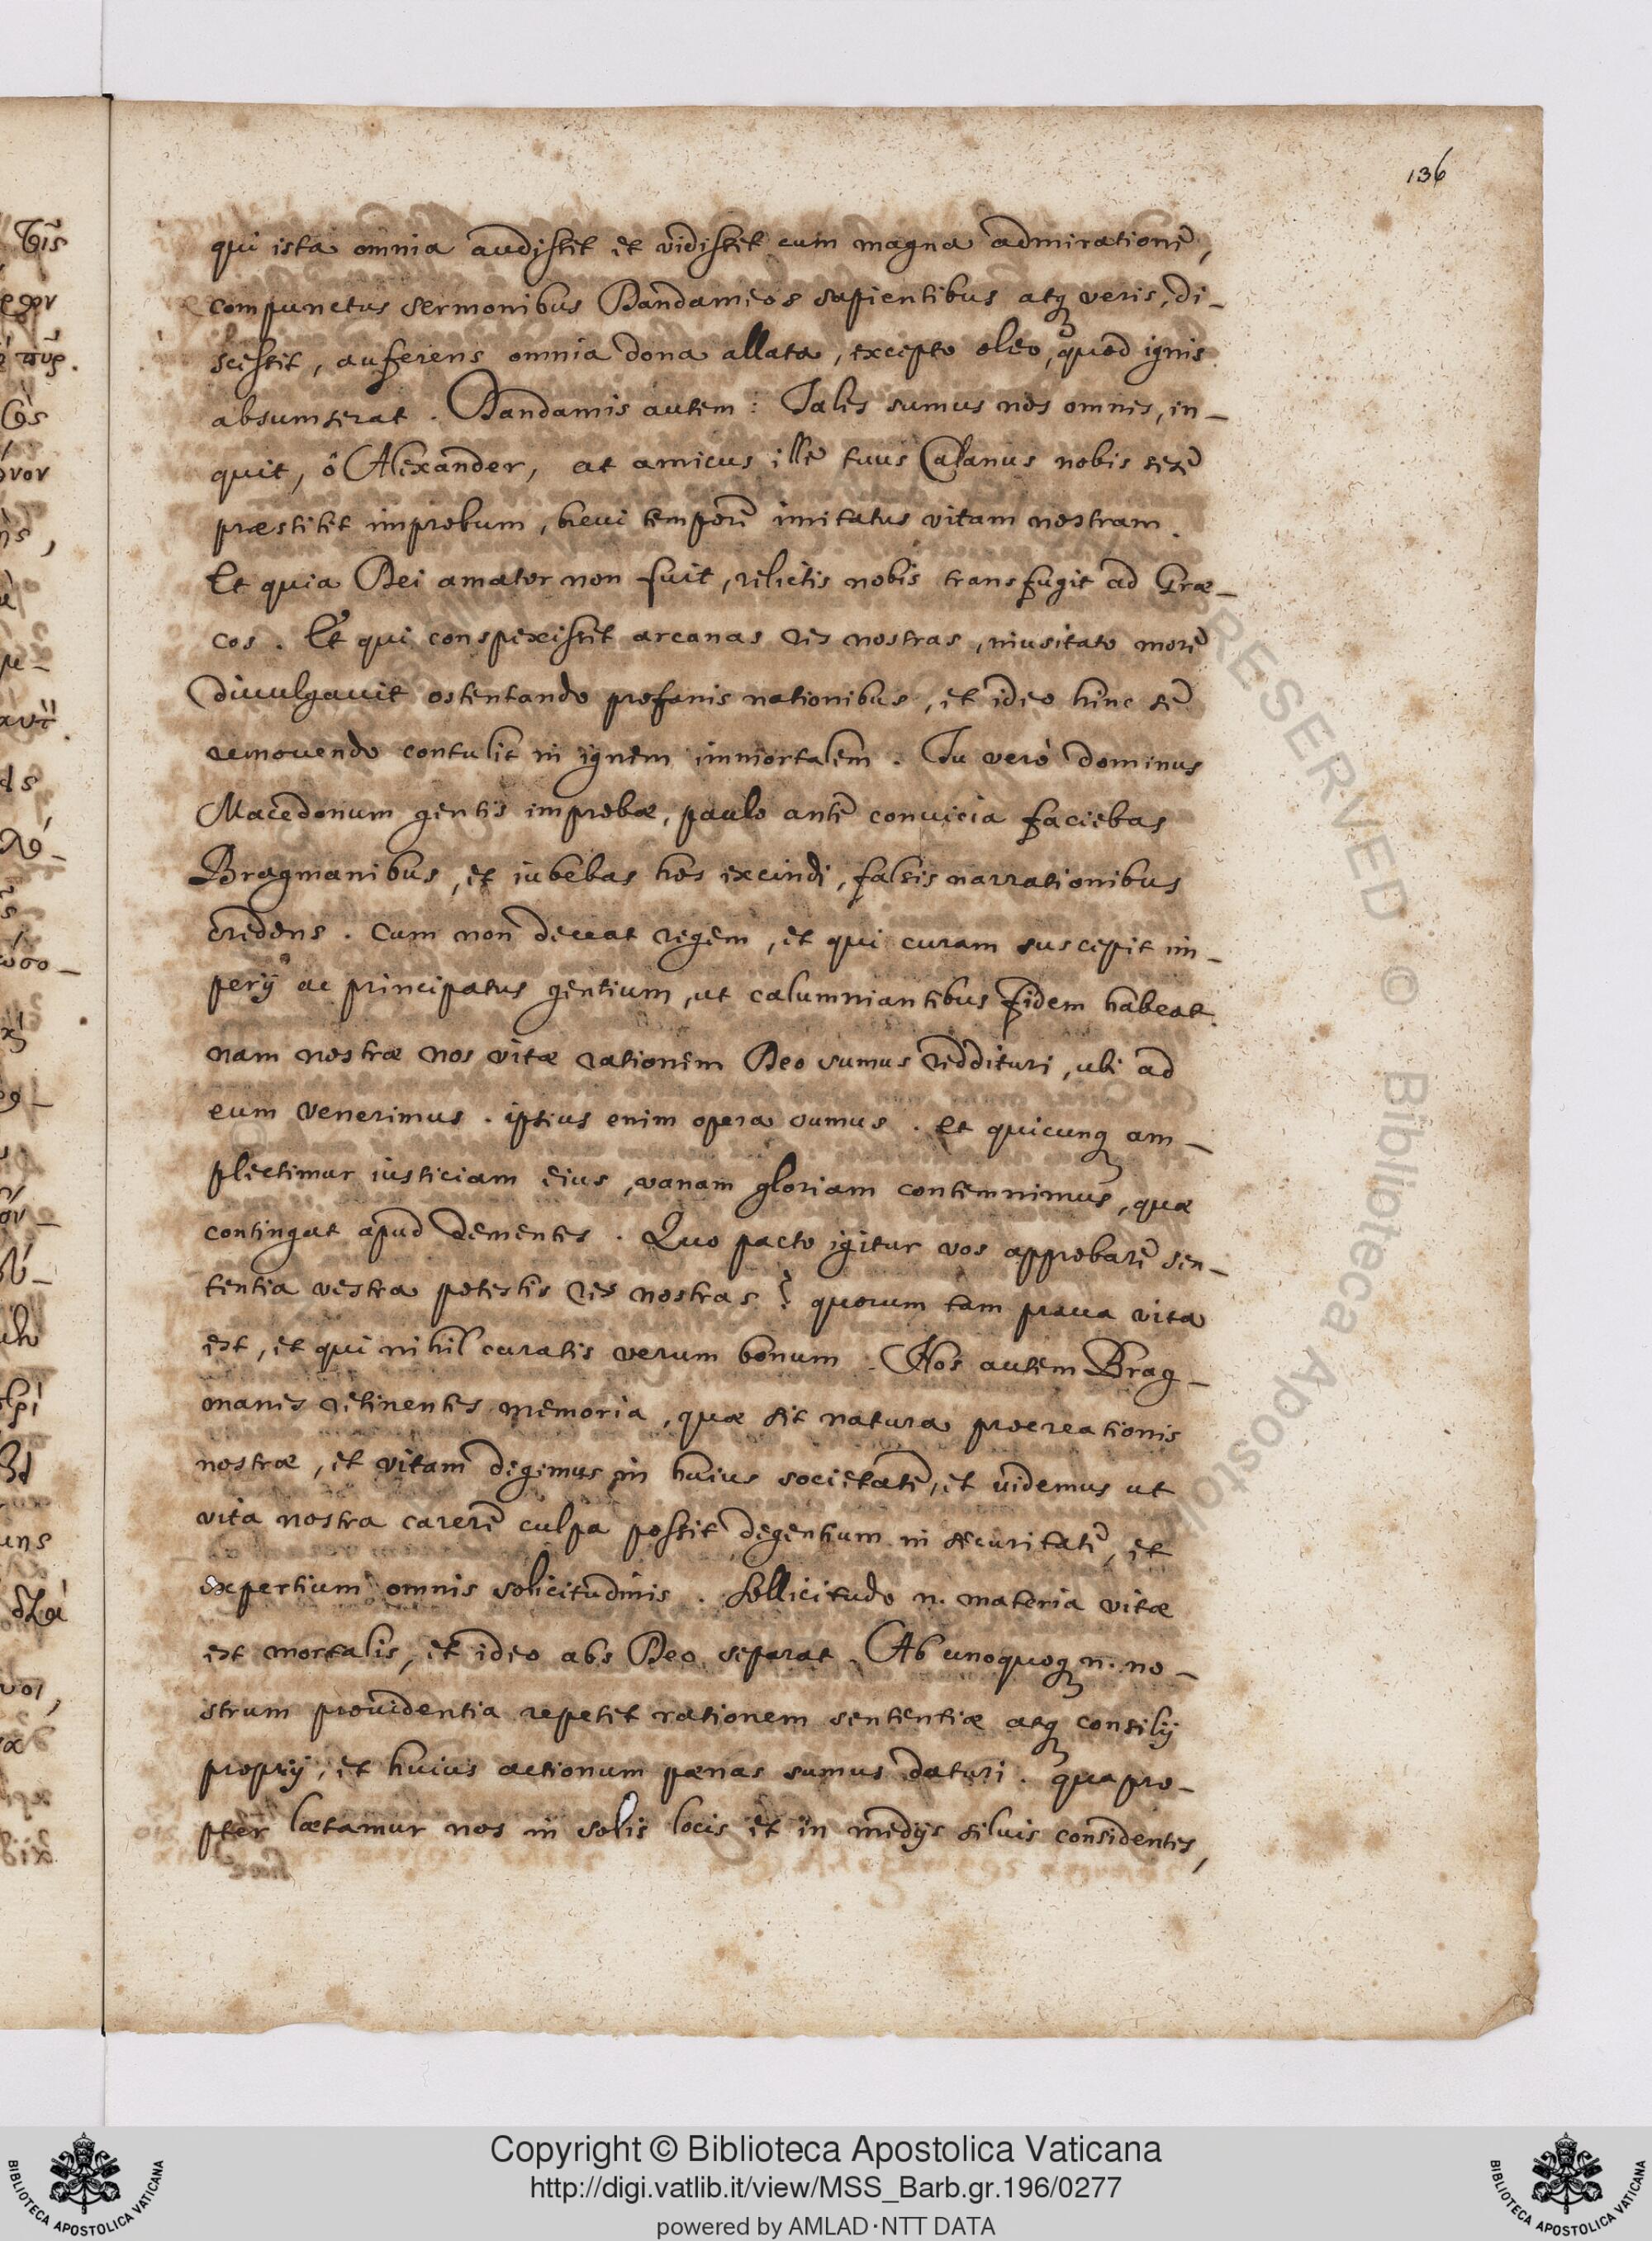 136
qui ista omnia audisset et vidisset cum magna admiratione,
compunctus sermonibus Dandameos sapientibus atq; veris, di-
scessit, auferens omnia dona allata, excepto oleo, quod ignis
absumserat. Dandamis autem: Tales sumus nos omnes, in-
quit, ô Alexander, at amicus ille tuus Calanus nobis sese
præstitit improbum, brevi tempore imitatus vitam nostram.
Et quia Dei amator non fuit, relictis nobis transfugit ad Græ-
cos. Et qui conspexisset arcanas res nostras, inusitato more
divulgauit ostentando profanis nationibus, et ideo hinc se
removendo contulit in ignem immortalem. Tu verò dominus
Macedonum gentis improbæ, paulo ante convicia faciebas
Bragmanibus, et iubebas hos excindi, falsis narrationibus
credens. Cum non deceat regem, et qui curam suscepit im-
perij ac principatus gentium, ut calumniantibus fidem habeat.
nam nostræ nos vitæ rationem Deo sumus reddituri, ubi ad
eum venerimus. ipsius enim opera sumus. et quicunq; am-
plectimur iusticiam eius, vanam gloriam contemnimus, quæ
contingat apud dementes. Quo pacto igitur vos approbare sen-
tentia vestra potestis res nostras? quorum tam praua vita
est, et qui nihil curatis verum bonum. Nos autem Brag-
manes retinentes memoria, quæ sit natura procreationis
nostræ, et vitam degimus in huius societate, et videmus ut
vita nostra carere culpa possit degentium in securitate, et
expertium omnis solicitudinis. Sollicitudo n. materia vitæ
est mortalis, et ideo abs Deo separat. Ab unoquoq; n. no-
strum providentia repetit rationem sententiæ atq; consilij
proprij, et huius actionum pœnas sumus daturi. quapro-
pter lætamur nos in solis locis et in medijs siluis considentes,
Copyright © Biblioteca Apostolica Vaticana
http://digi.vatlib.it/view/MSS_Barb.gr.196/0277
powered by AMLAD·NTT DATA
BIBLIOTECA APOSTOLICA VATICANA
BIBLIOTECA APOSTOLICA VATICANA